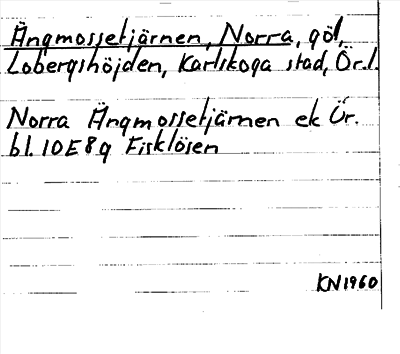 Ängmossetjärnen, Norra, göl,
Lobergshöjden, Karlskoga stad, Ör.l.
Norra Ängmossetjärnen ek Ör.
bl. 10E8g Fisklösen
KN1960